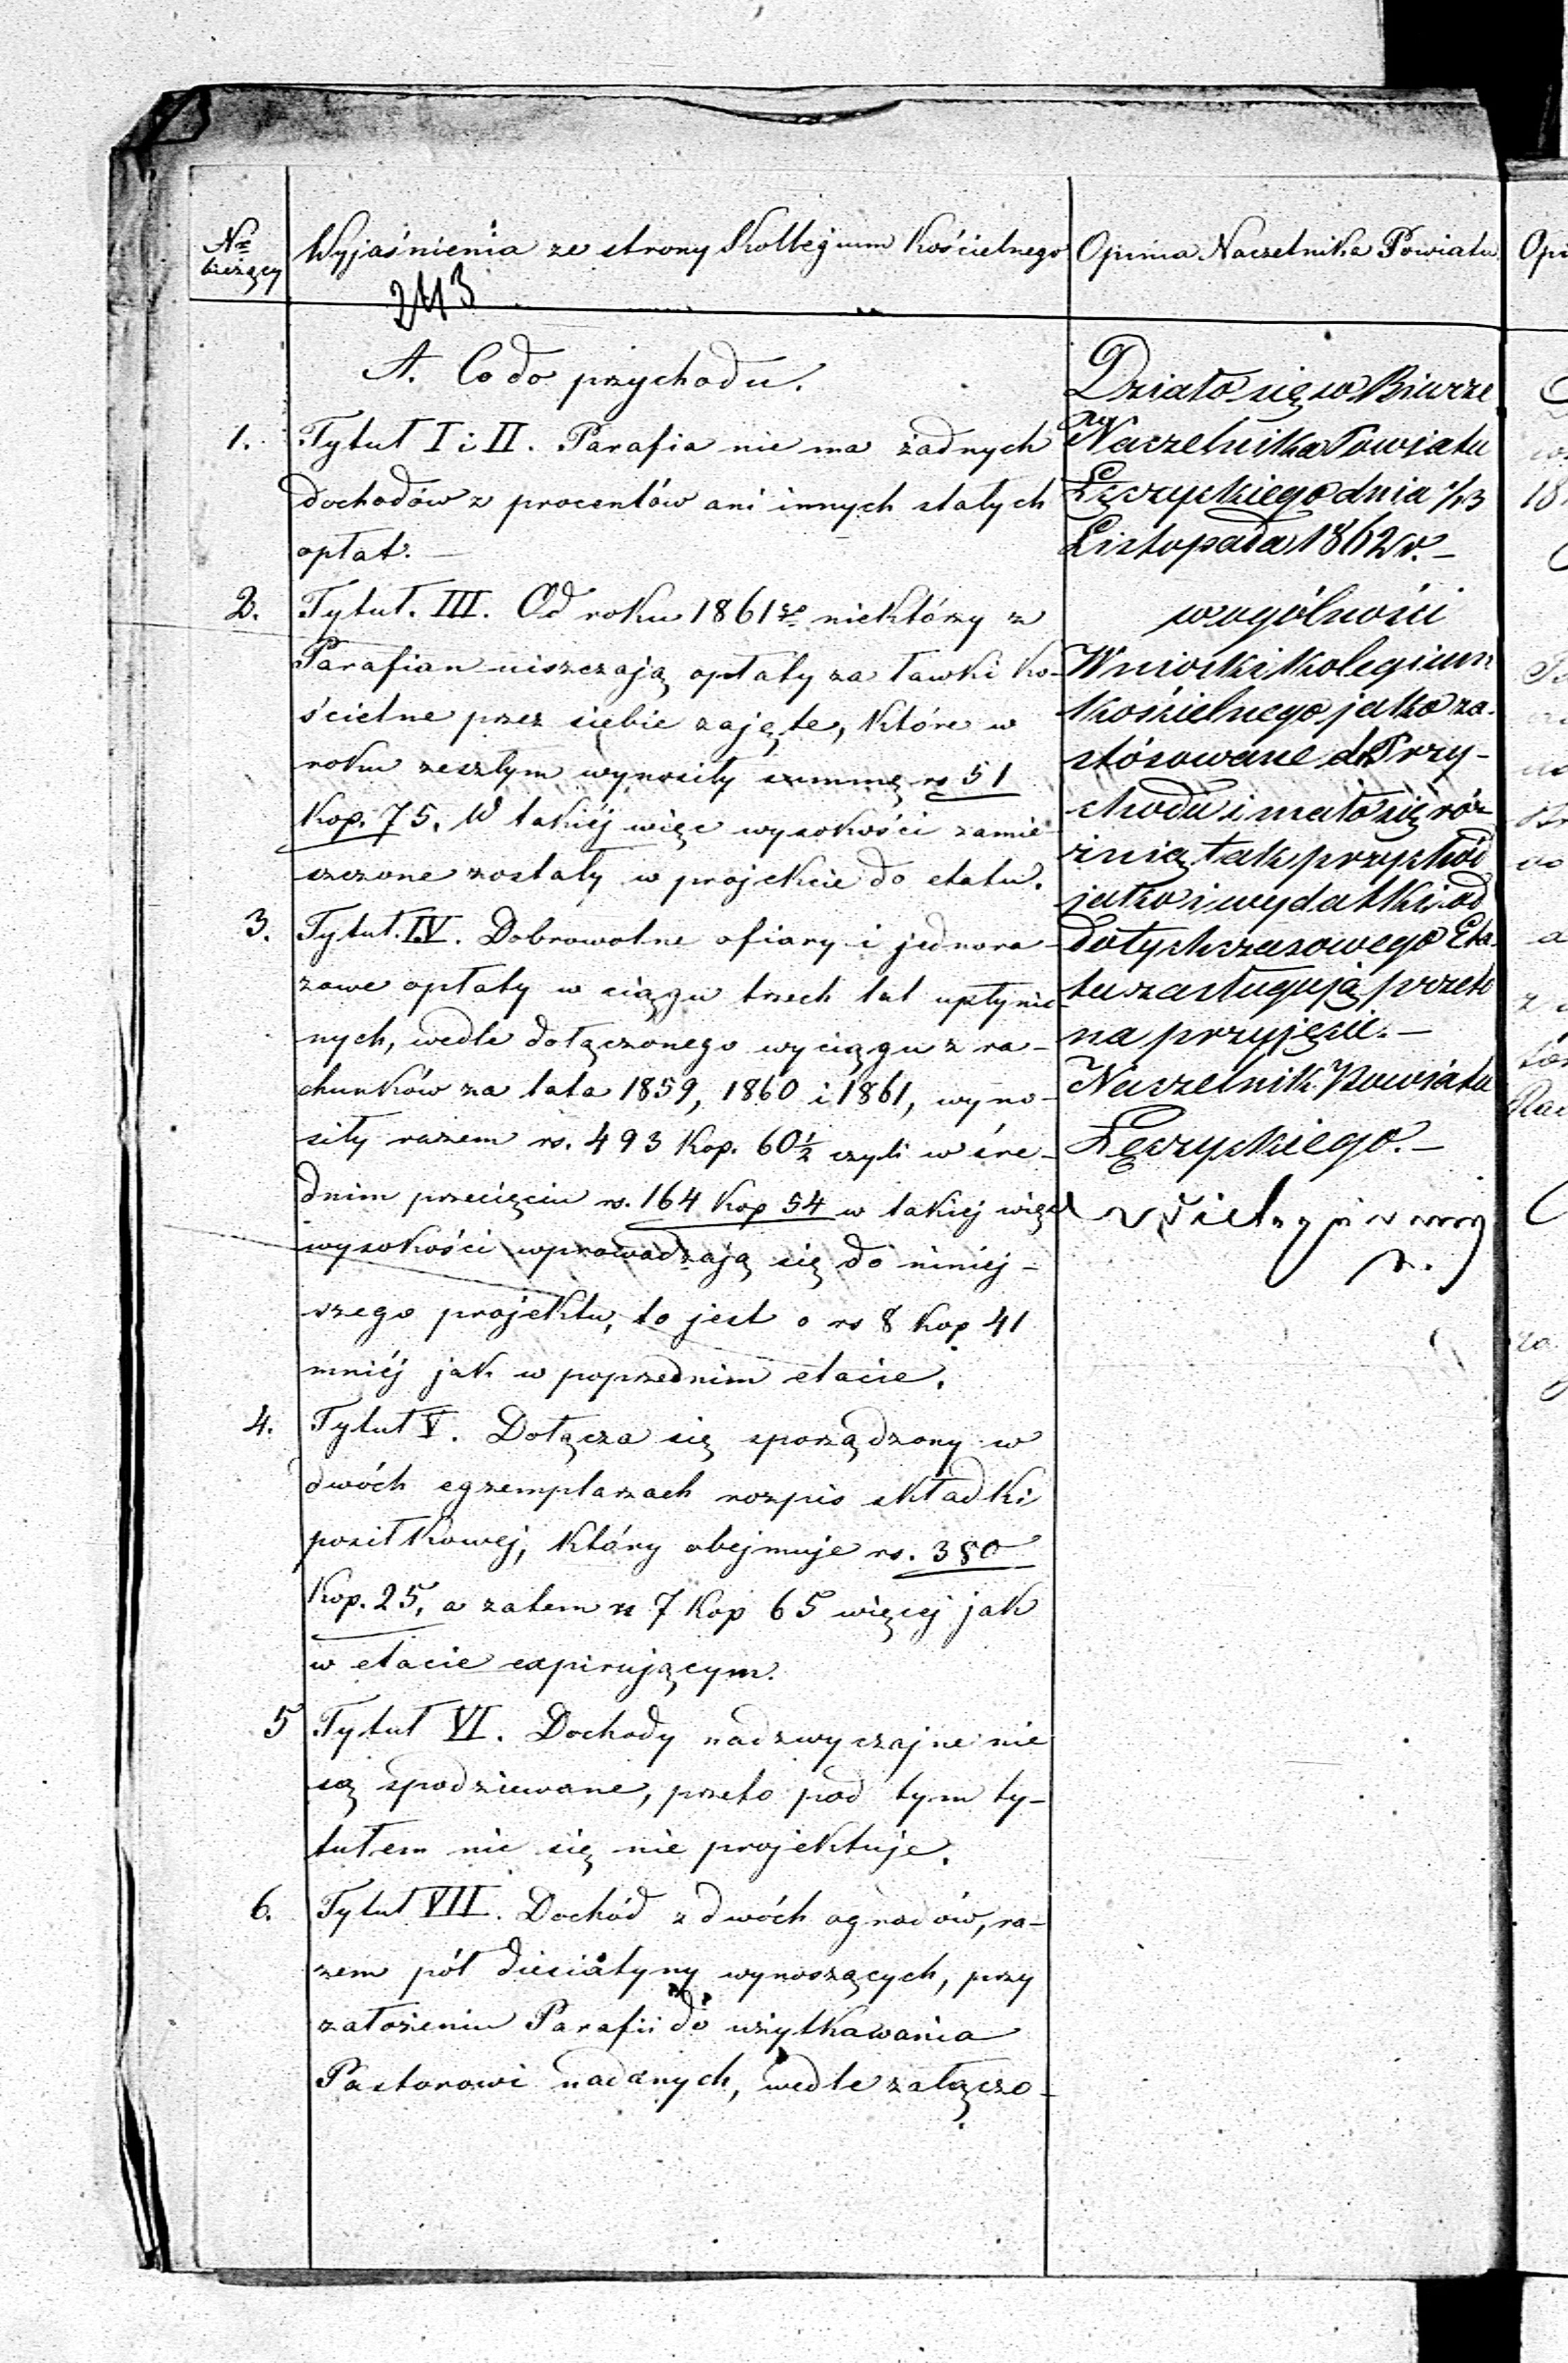 Nr bieżący
Wyjaśnienia ze strony Kollegium Kościelnego
243
A. Co do przychodu.
1.
Tytuł I i II. Parafia nie ma żadnych
dochodów z procentów ani innych stałych
opłat. —
2.
Tytuł. III. Od roku 1861go niektórzy z
Parafian uiszczają opłaty za ławki ko-
ścielne przez siebie zajęte, które w
roku zeszłym wynosiły summę rs 51
Kop. 75. W takiéj więc wysokości zamie
szczone zostały w projekcie do etatu.
3.
Tytuł. IV. Dobrowolne ofiary i jednora-
zowe opłaty w ciągu trzech lat upłynio-
nych, wedle dołączonego wyciągu z ra-
chunków za lata 1859, 1860 i 1861, wyno-
siły razem rs. 493 Kop. 60½ czyli w śre-
dnim przecięciu rs. 164 Kop 54 w takiej więc
wysokości wprowadzają się do niniej-
szego projektu, to jest o rs 8 Kop 41
mniéj jak w poprzednim etacie.
4.
Tytuł V. Dołącza się sporządzony w
dwóch egzemplarzach rozpis składki
posiłkowej, który obejmuje rs. 380
Kop. 25, a zatem rs 7 Kop 65 więcej jak
w etacie expirującym.
5
Tytuł VI. Dochody nadzwyczajne nie
są spodziewane, przeto pod tym ty-
tułem nic się nie projektuje.
6.
Tytuł VII. Dochód z dwóch ogrodów, ra-
zem pół diesiatyny wynoszących, przy
założeniu Parafii do użytkowania
Pastorowi nadanych, wedle załączo-
Opinia Naczelnika Powiatu
Działo się w Biurze
Naczelnika Powiatu
Łęczyckiego dnia 1/13
Listopada 1862 r. —
w ogólności
Wnioski Kolegium
Kościelnego jako za-
stósowane do Przy-
chodu i mało się ró-
żnią tak przychód
jako i wydatki od
dotychczasowego Eta-
tu zasługują przeto
na przyjęcie. —
Naczelnik Powiatu
Łęczyckiego. —
Opi
18